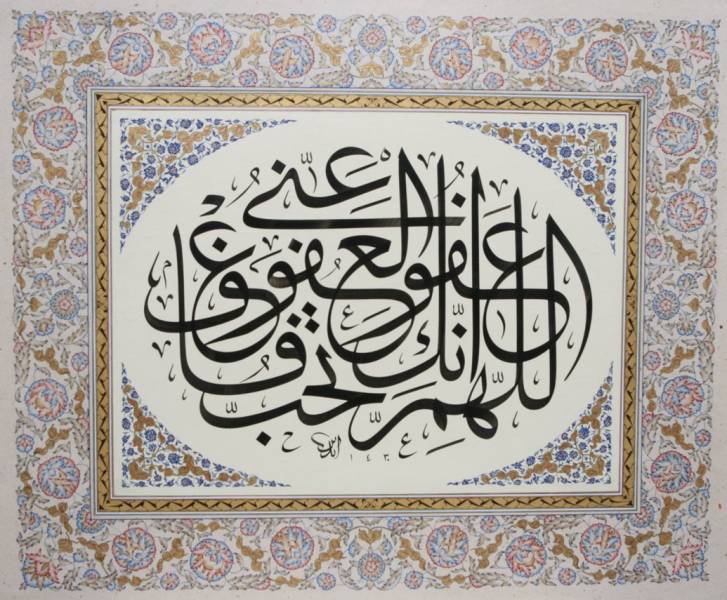 اللّهمّ انّك عفوّ تحبّ العفو فاعف عنّى
١٤٣٠